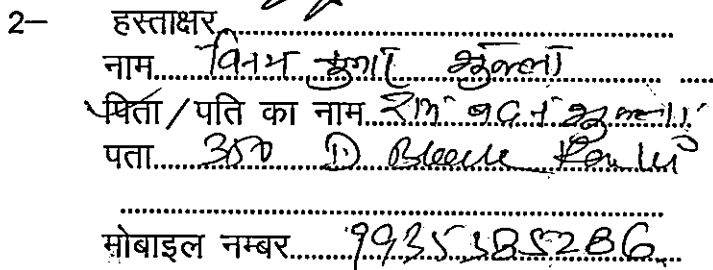 2- हस्ताक्षर
नाम विनय कुमार शुक्ला
पिता/पति का नाम राम शुक्ला
पता 300 D Block
मोबाइल नम्बर 9935385286